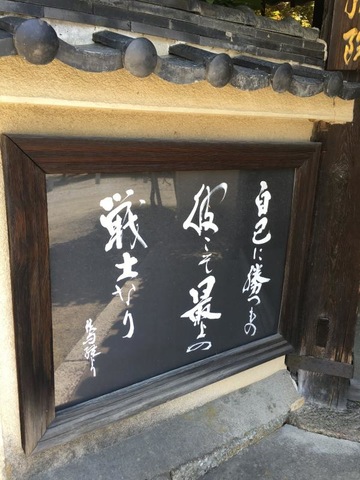 自己に勝つもの
彼こそ最上の
戦士なり
院